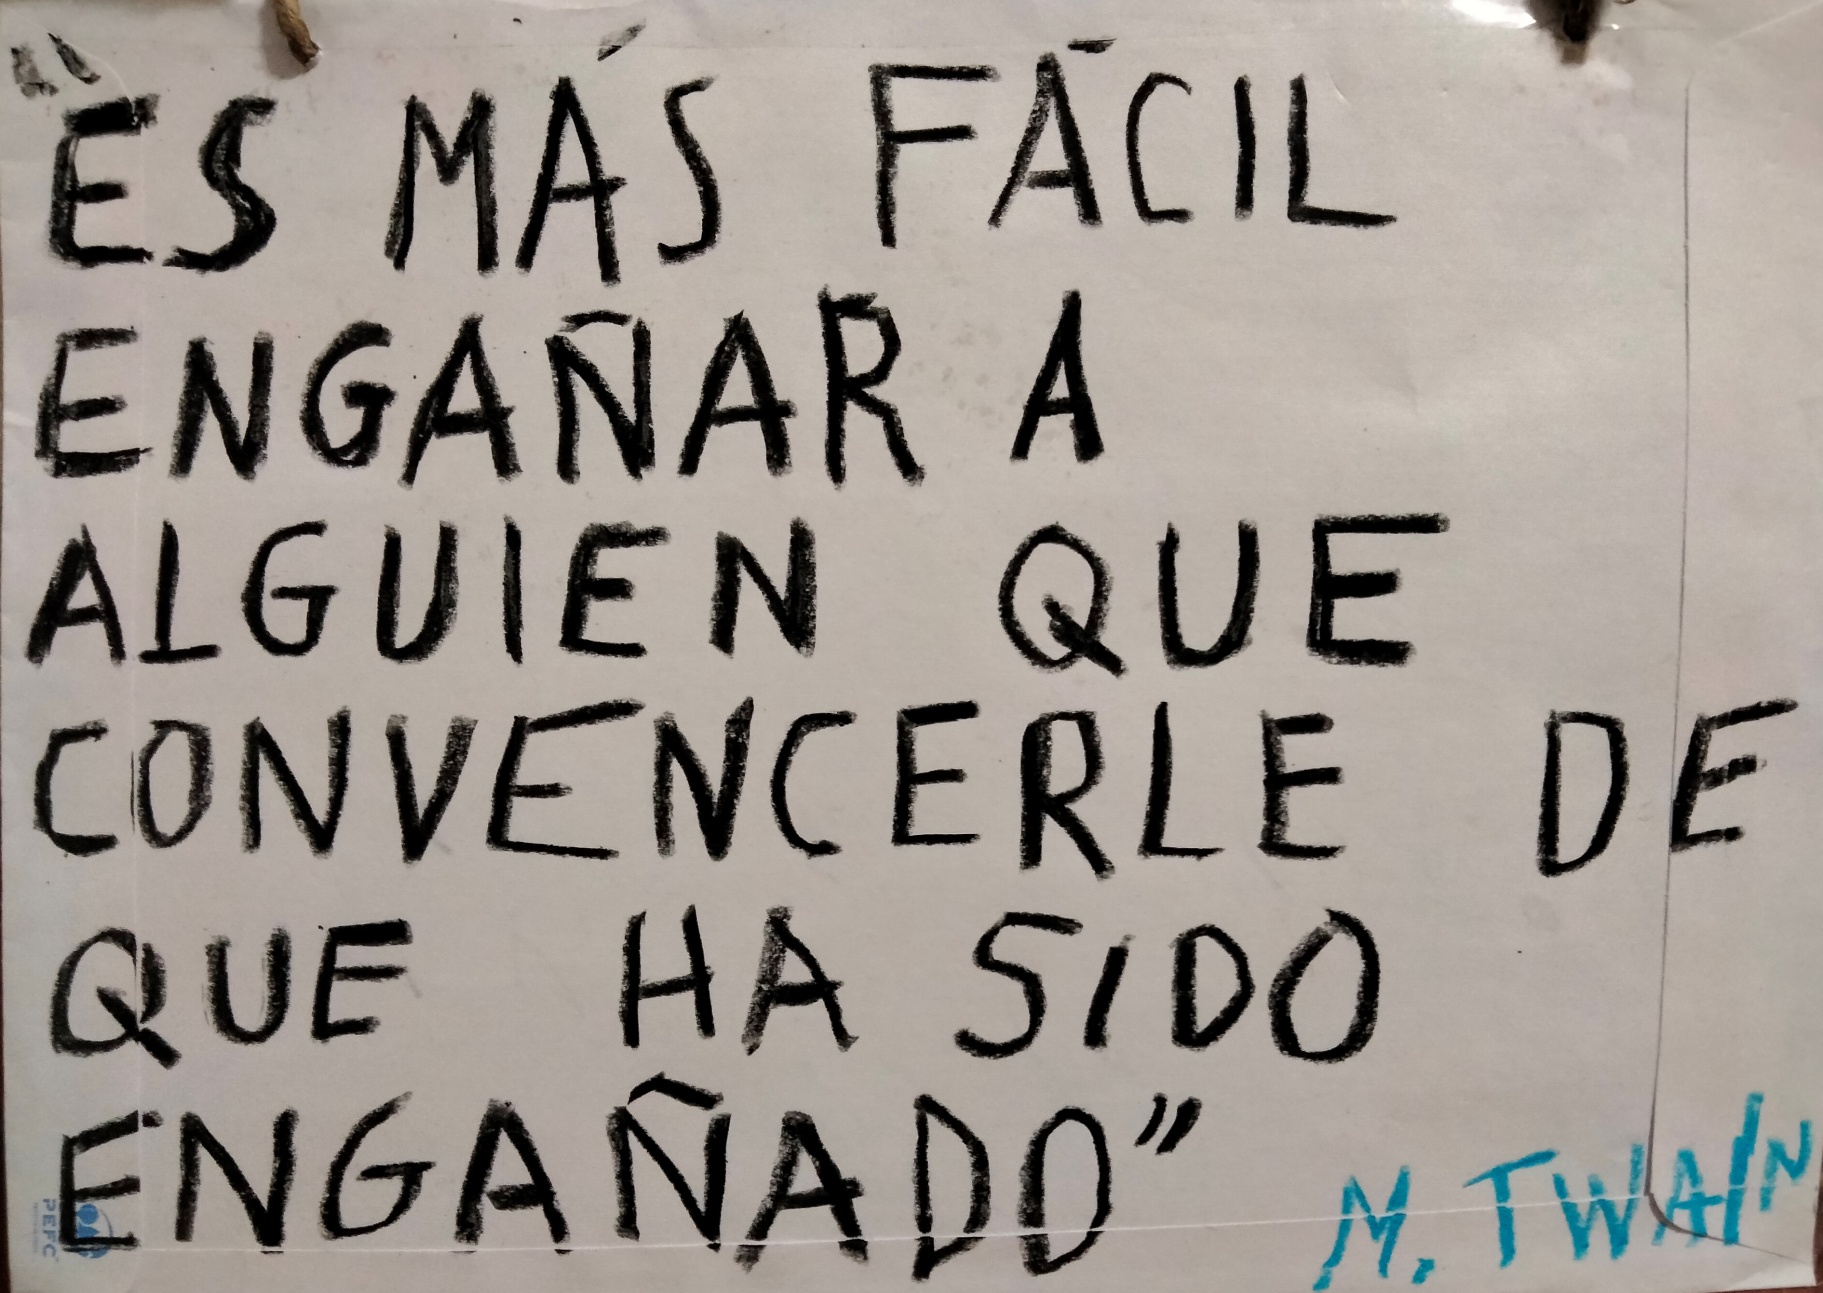 "ES MÁS FÁCIL
ENGAÑAR A
ALGUIEN QUE
CONVENCERLE DE
QUE HA SIDO
ENGAÑADO"
M. TWAIN
PEFC